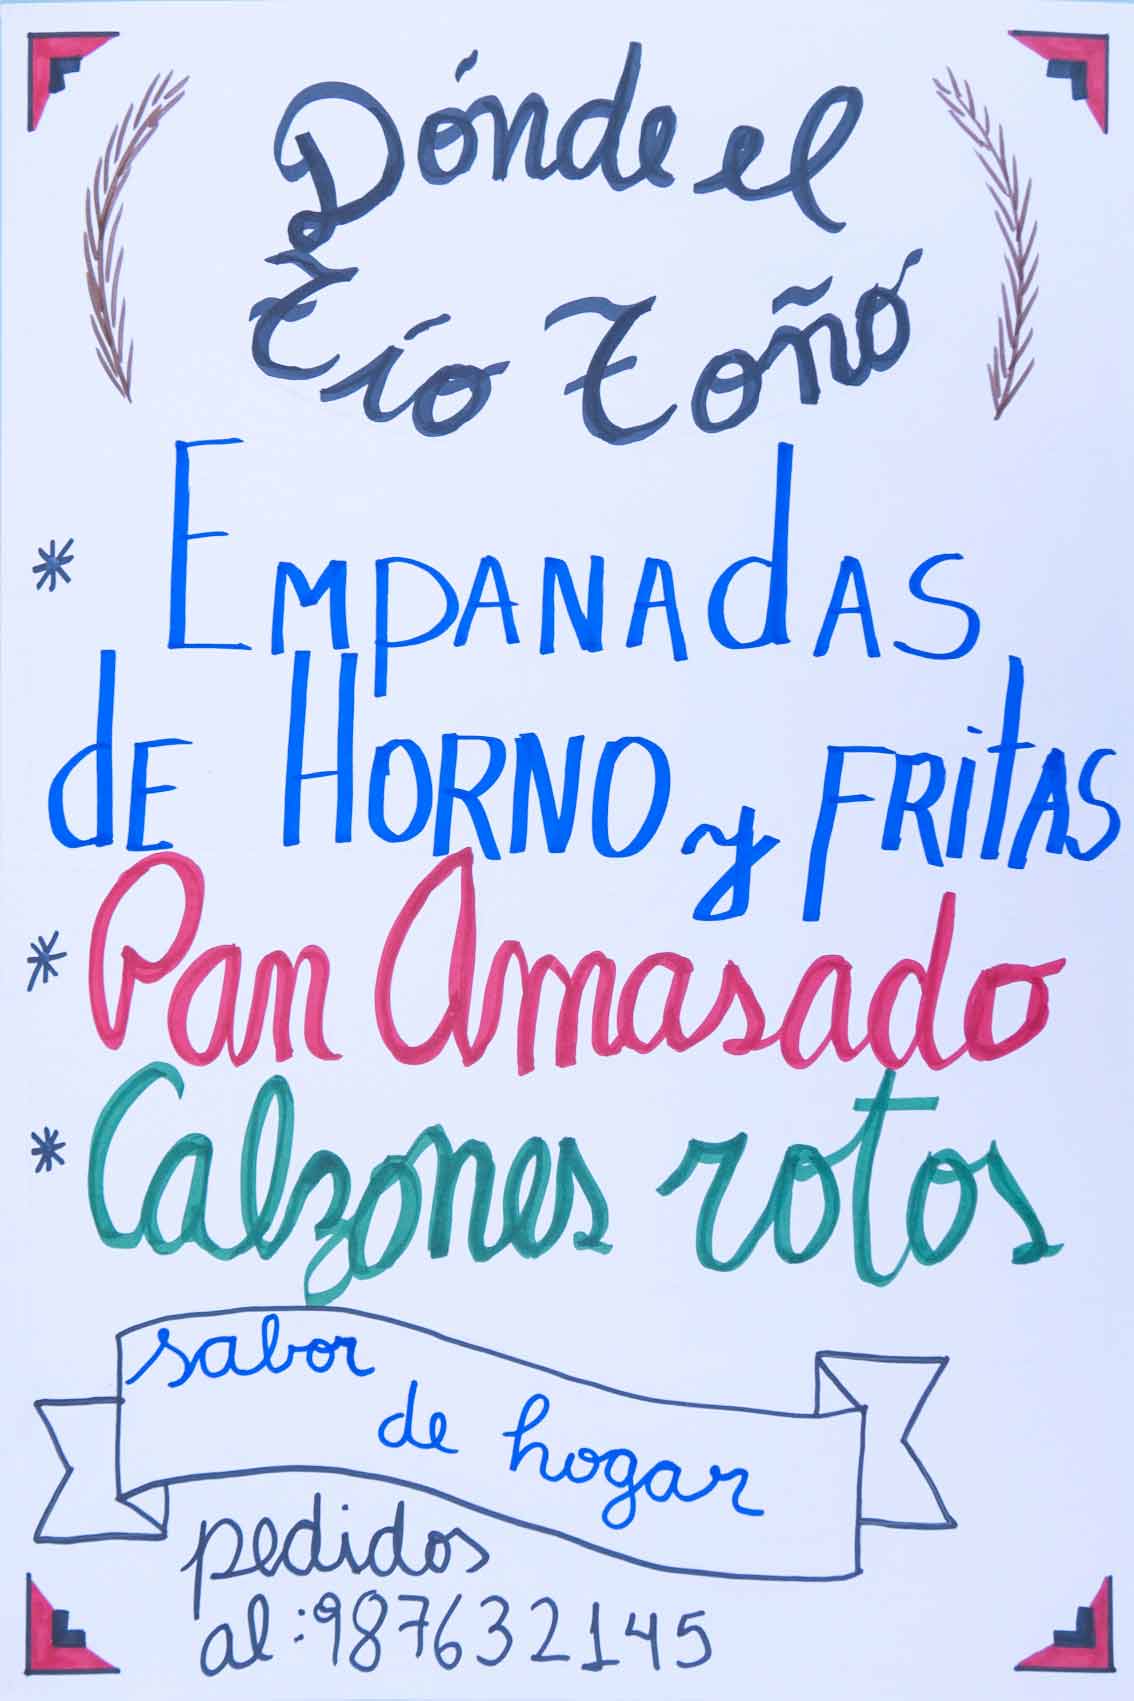 Dónde el
Tío Toño
* EMPANAdAS
dE HORNO y FRitAS
* Pan Amasado
* Calzones rotos
sabor
de hogar
pedidos
al: 987632145